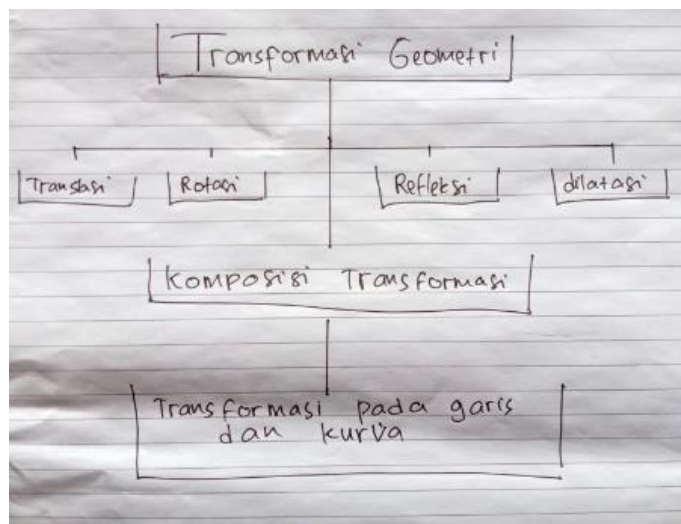 Transformasi Geometri
Translasi
Rotasi
Refleksi
dilatasi
Komposisi Transformasi
Transformasi pada garis
dan kurva